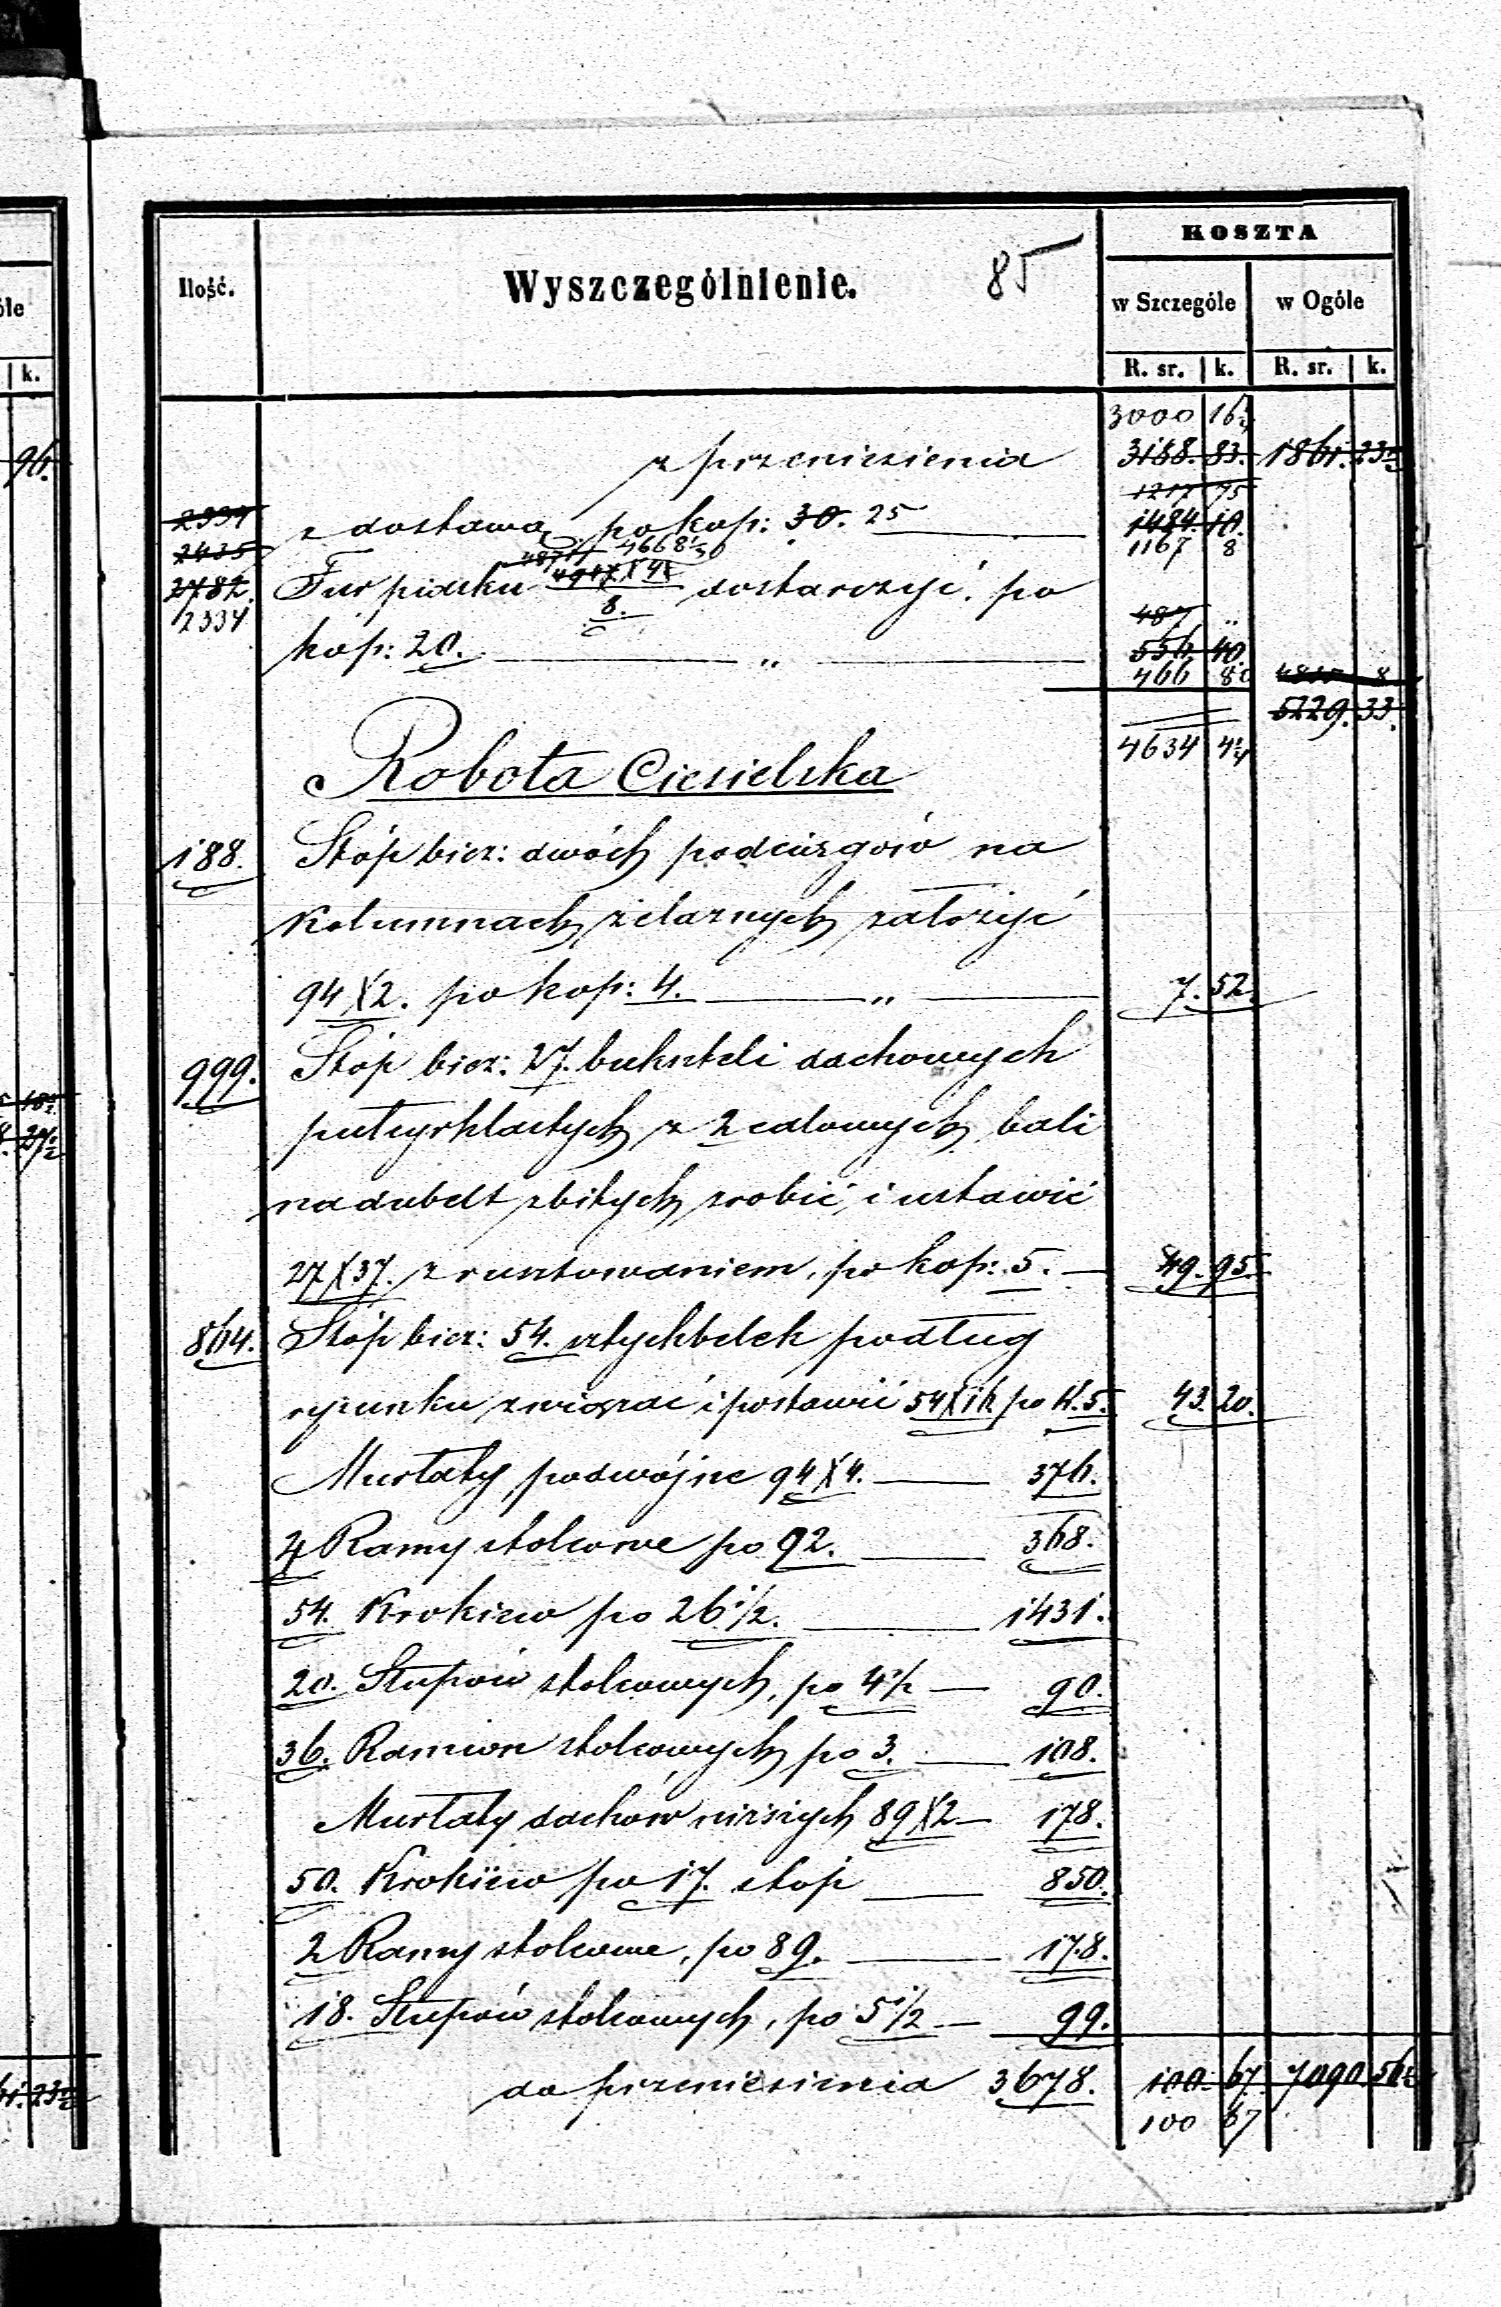 KOSZTA
Ilość. Wyszczególnienie. 85 w Szczególe w Ogóle
R. sr. k. R. sr. k.
3000 16½
z przeniesienia 3188. 83. 1861. 23½
1217 75
2334 z dostawą po kop: 30. 25 1484. 10.
2435 1167 8
4668½
2782. Fur piasku 8. dostarczyć. po
2334 487 ..
kop: 20. " 556 40.
466 80 4835 8
5229. 33.
4634 4¼
Robota Ciesielska
188. Stóp bież: dwóch podciągów na
kolumnach żelaznych założyć
94X2. po kop: 4. " 7. 52.
999. Stóp bież: 27. buksteli dachowych
pułcyrklastych z 2 calowych bali
na dubelt zbitych zrobić i ustawić
27X37. z rusztowaniem, po kop: 5. 49. 95.
864. Stóp bież: 54. sztychbelek podług
rysunku związać i postawić 54X16 po K. 5. 43. 20.
Murłaty podwójne 94X4. 376.
4 Ramy stolcowe po 92. 368.
54. Krokiew po 26½. 1431.
20. Słupów stolcowych, po 4½ 90.
36. Ramion stolcowych po 3. 108.
Murłaty dachów niższych 89X2 178.
50. Krokiew po 17. stóp 850.
2 Ramy stolcowe, po 89. 178.
18. Słupów stolcowych, po 5½ 99.
do przeniesienia 3678. 100. 67. 7090 56½
100 67
óle
k.
96.